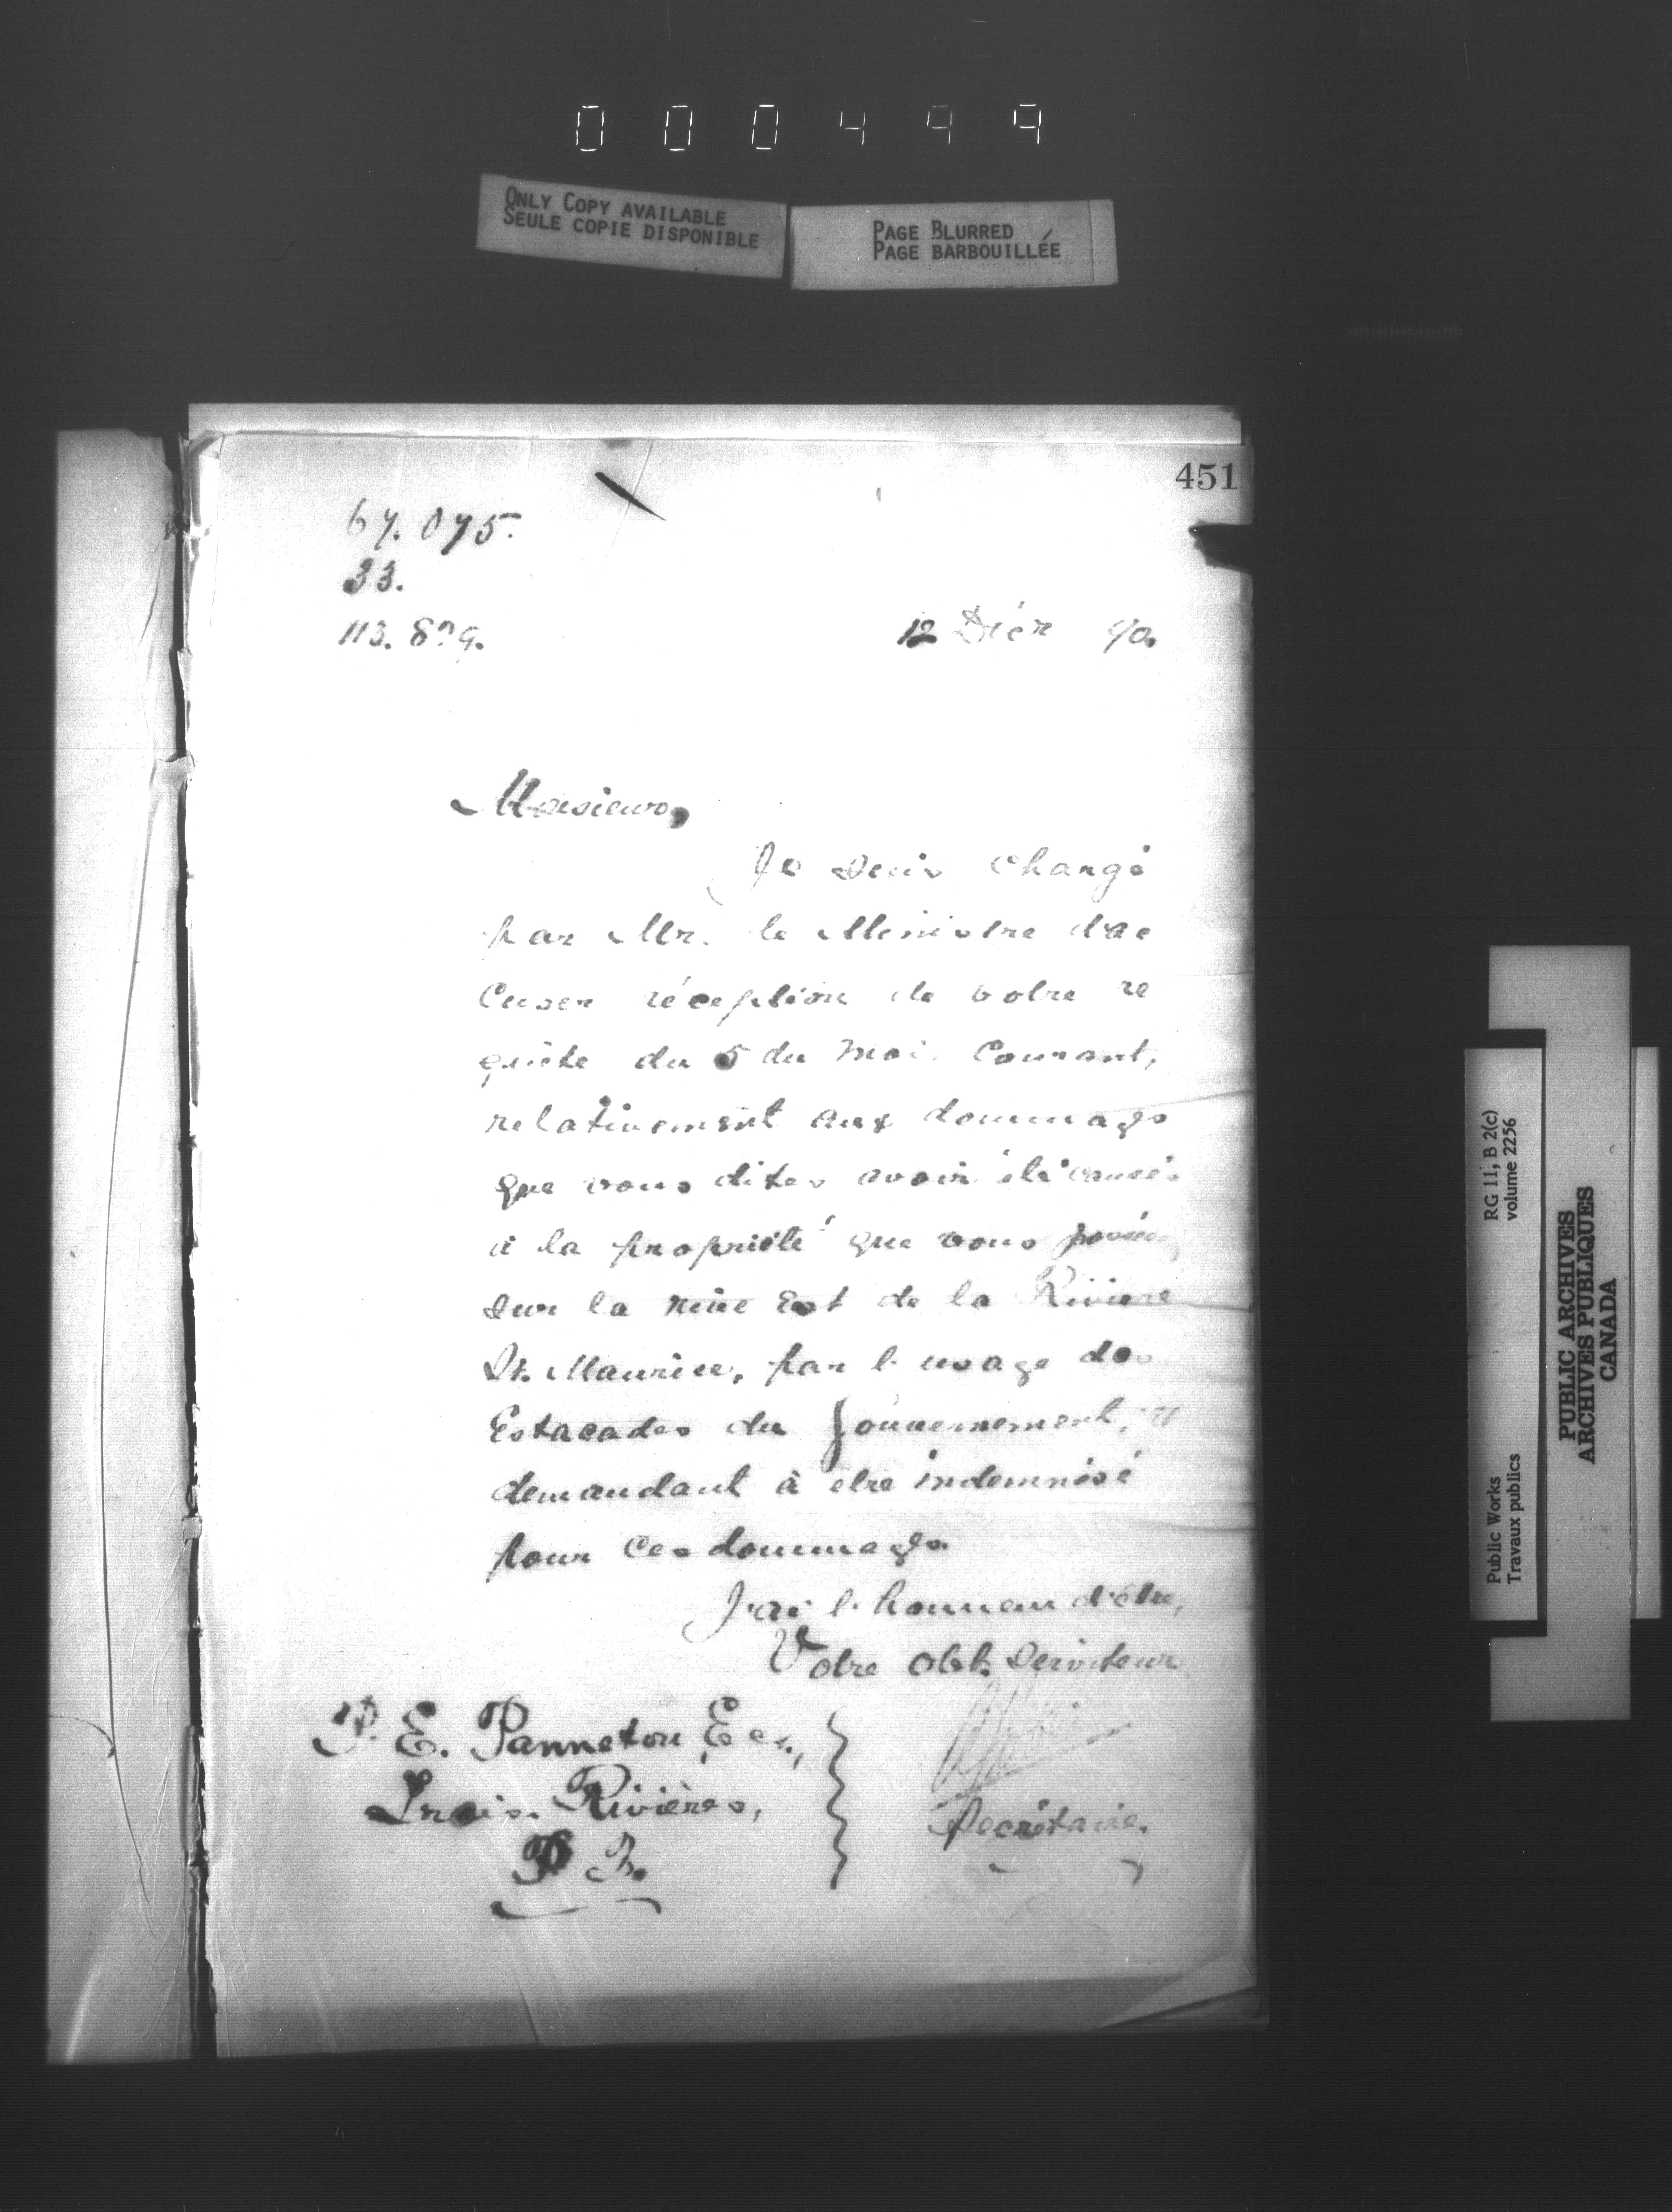 000499
ONLY COPY AVAILABLE
SEULE COPIE DISPONIBLE
PAGE BLURRED
PAGE BARBOUILLÉE
451
67.075.
33.
12 Décr 90.
Monsieur,
Je suis chargé
par Mr. le Ministre d'ac
cuser réception de votre re
quête du 5 du mois courant,
relativement aux dommages
que vous dites avoir été causés
à la propriété que vous
sur la rive Est de la Rivière
St. Maurice, par l'usage des
Estacades du Gouvernement, et
demandant à être indemnisé
pour ces dommages.
J'ai l'honneur d'être,
Votre obt. Serviteur
P. E. Panneton, Ecr.,
Trois-Rivières,
P. Q.
Secrétaire.
RG 11, B 2(c)
volume 2256
Public Works
Travaux publics
PUBLIC ARCHIVES
ARCHIVES PUBLIQUES
CANADA